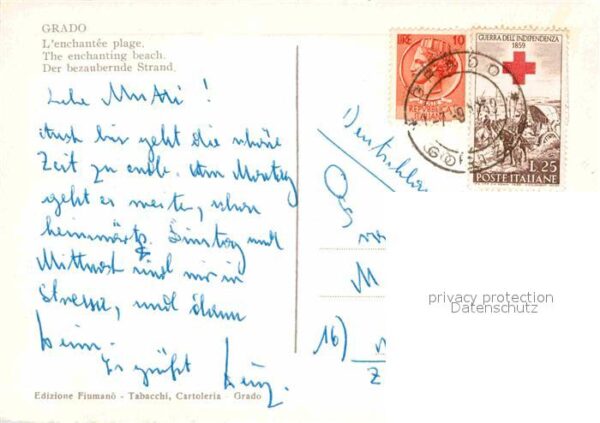 GRADO
L'enchantée plage.
The enchanting beach.
Der bezaubernde Strand.
LIRE 10
GUERRA DELL'INDIPENDENZA
1859
L.25
POSTE ITALIANE
Liebe Mutti !
Auch hier geht die schöne
Zeit zu ende. Am Montag
geht es weiter, schon
heimwärts. Dinstag und
Mittwoch sind wir in
Stresa, und dann
heim.
Es grüßt
Heinz.
Deutschla
16)
privacy protection
Datenschutz
Edizione Fiumanò - Tabacchi, Cartoleria - Grado